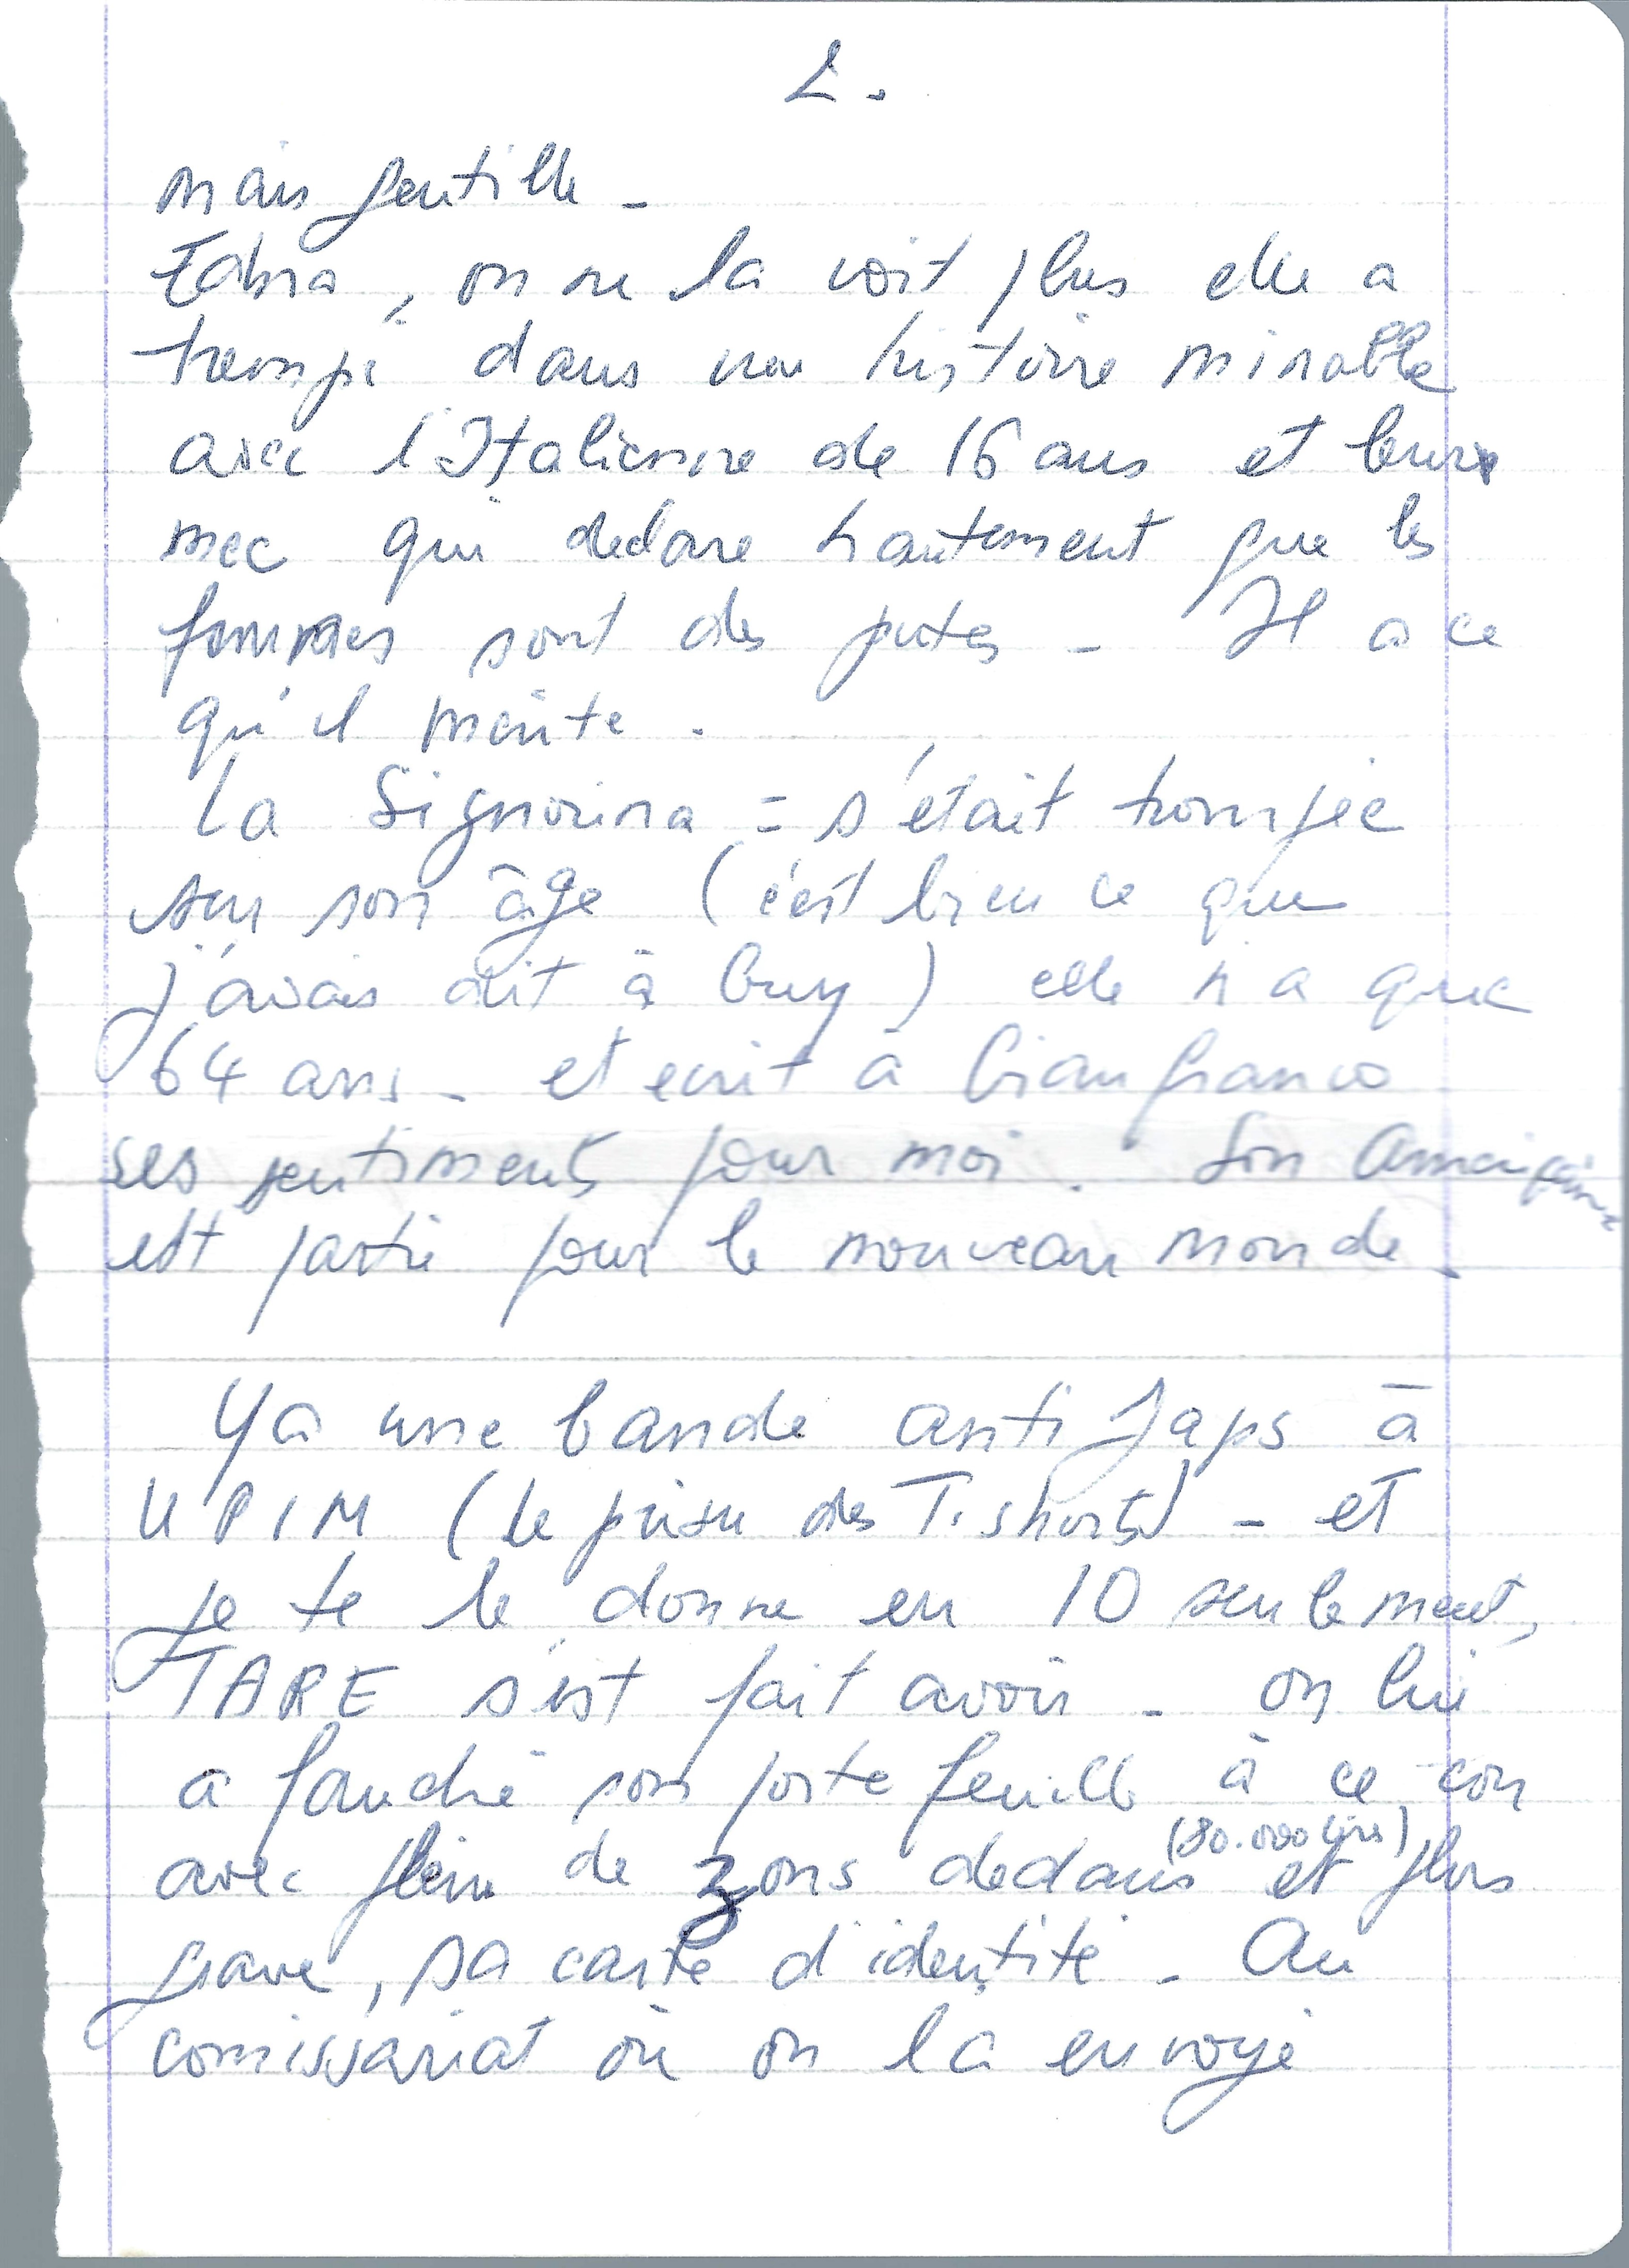 2.
mais gentille -
Zahra, on ne la voit plus elle a
trempé dans une histoire minable
avec l'Italienne de 16 ans et leurs
mec qui déclare hautement que les
femmes sont des putes - Il a ce
qu'il mérite.
La Signorina = s'était trompée
sur son âge (c'est bien ce que
j'avais dit à Guy) elle n'a que
64 ans - et écrit à Gianfranco
ses sentiments pour moi. Son Américaine
est partie pour le nouveau monde -
Ya une bande anti Japs à
UPIM (le prisu des T. shorts) - et
je te le donne en 10 seulement,
TARE s'est fait avoir - on lui
a fauché son portefeuille à ce con
avec plein de zons dedans (80.000 lires) et plus
grave, sa carte d'identité - Au
comissariat où on la envoyé